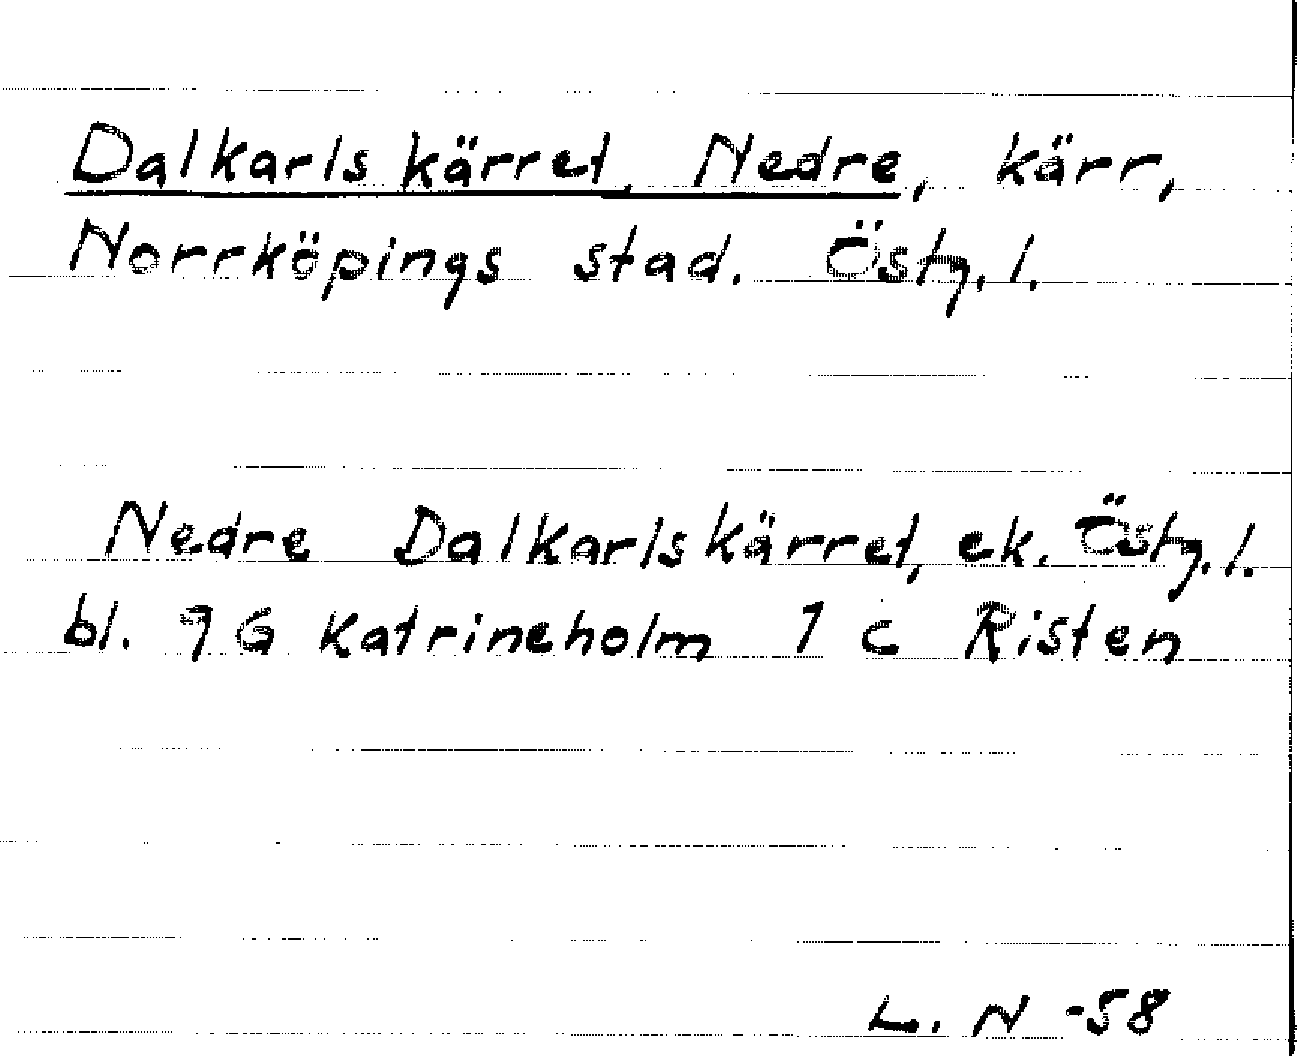 Dalkarlskärret, Nedre, kärr,
Norrköpings stad. Östg. l.
Nedre Dalkarlskärret, ek. Östg. l.
bl. 9 G Katrineholm 1 c Risten
L. N -58